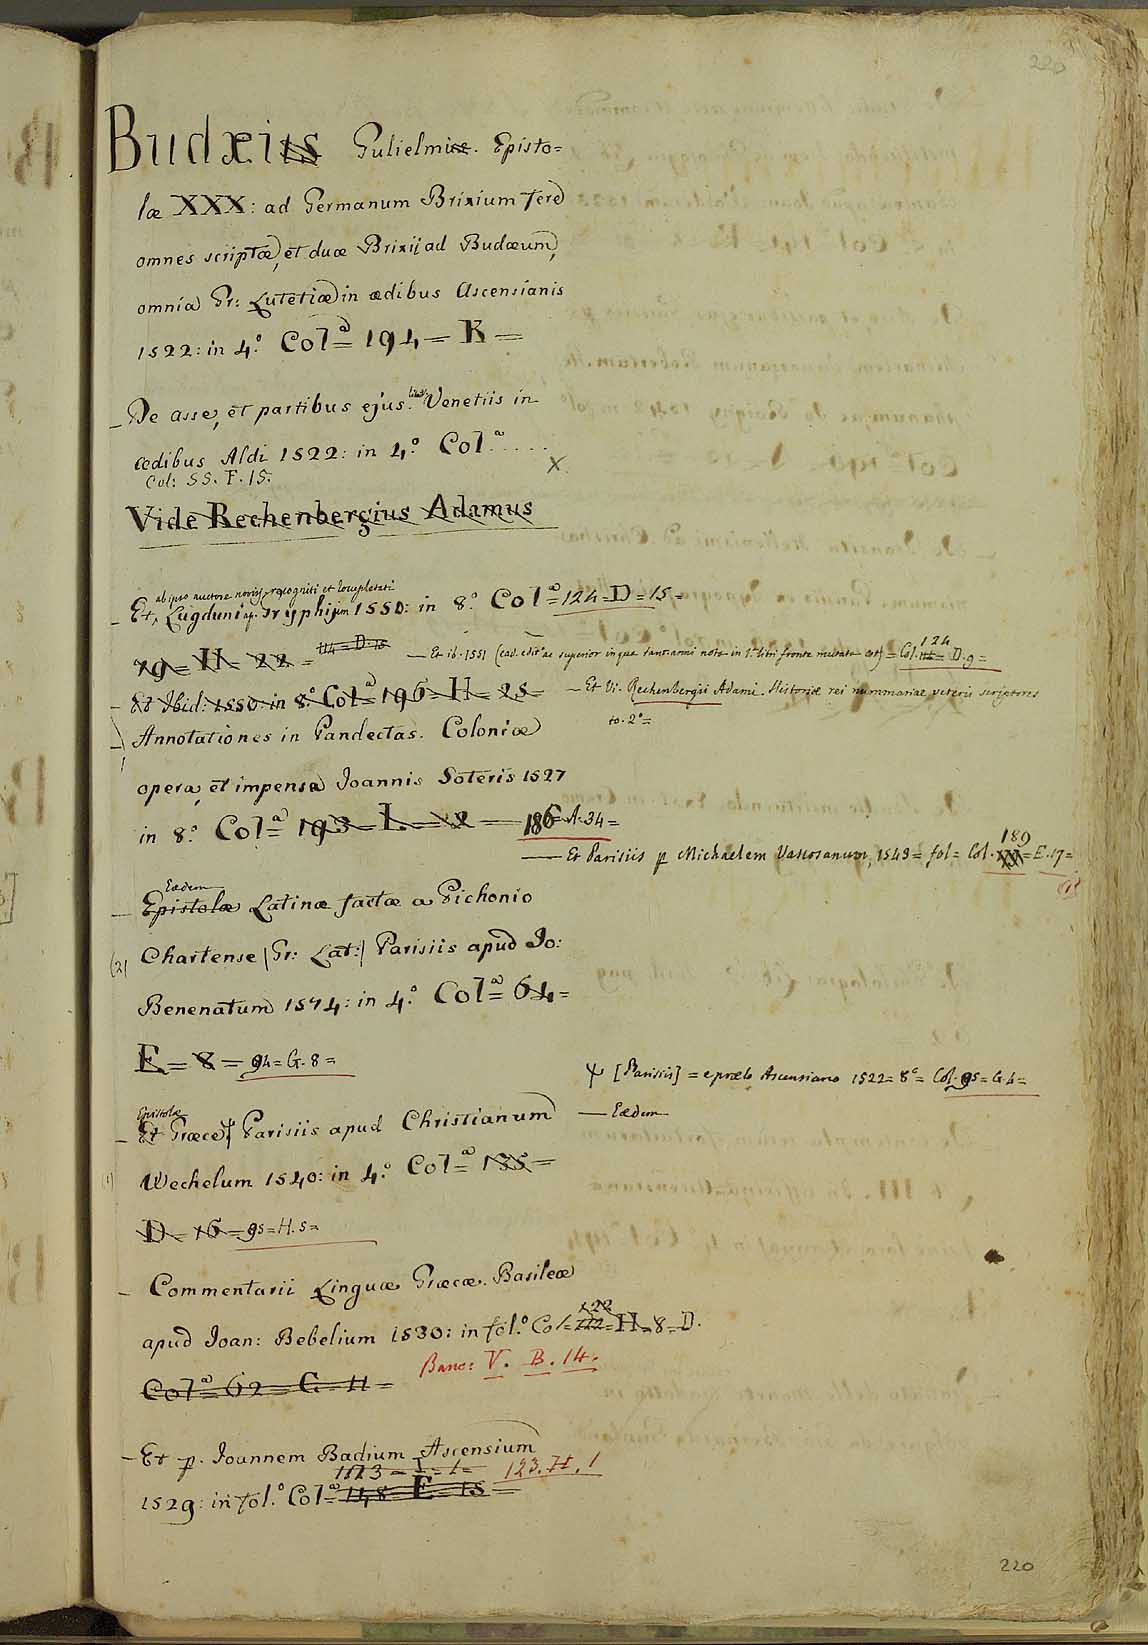 220
Budæius Gulielmus. Episto=
læ XXX: ad Germanum Brixium ferè
omnes scriptæ, et duæ Brixij ad Budæum,
omnia Gr: Lutetiæ in ædibus Ascensianis
1522: in 4.º Colª= 194= K=
_De asse, et partibus ejus. Venetiis in
ædibus Aldi 1522: in 4.º Col.ª.....
Col: SS. F. 15. X
Vide Rechenbergius Adamus
ab ipso auctore noviss. recogniti et locupletati
_ Et, Lugduni ap. Gryphium 1550: in 8.º Colª=124=D=15=
79=H=22= 114=D=15 — Et ib. 1551 (ead. editº ac superior inque tant. anni nota in 1.º libri fronte mutata est) = Col. 124 = D. 9=
_ Et Ibid: 1550: in 8.º Colª=196=H=25= — Et Vi. Rechenbergii Adami. Historiæ rei nummariæ veteris scriptores
to. 2º=
_ Annotationes in Pandectas. Coloniæ
opera, et impensa Joannis Soteris 1527
in 8.º Colª= 193=L=32= 186=A.34=
— Et Parisiis p Michaelem Vascosanum, 1543= fol= Col. 189=E.17=
(1)
Eædem
_ Epistolæ Latinæ factæ a Pichonio
(2) Chartense (Gr: Lat:) Parisiis apud Jo:
Benenatum 1574: in 4.º Colª= 64=
E=8= 94=G.8=
[Parisiis] = e prælo Ascensiano 1522= 8º= Col. 95=G.4=
— Eædem
Epistolæ
_ Et Græce Parisiis apud Christianum
(1) Wechelum 1540: in 4.º Colª= 135=
D=16= 95=H.5=
_ Commentarii Linguæ Græcæ. Basileæ
apud Joan: Bebelium 1530: in fol.º Col= 122=H=8=D.
Colª=62=G=11= Banc: V. B. 14.
_ Et p. Joannem Badium Ascensium
1123=I=1= 123. H. 1
1529: in fol.º Colª=148=E=15=
220